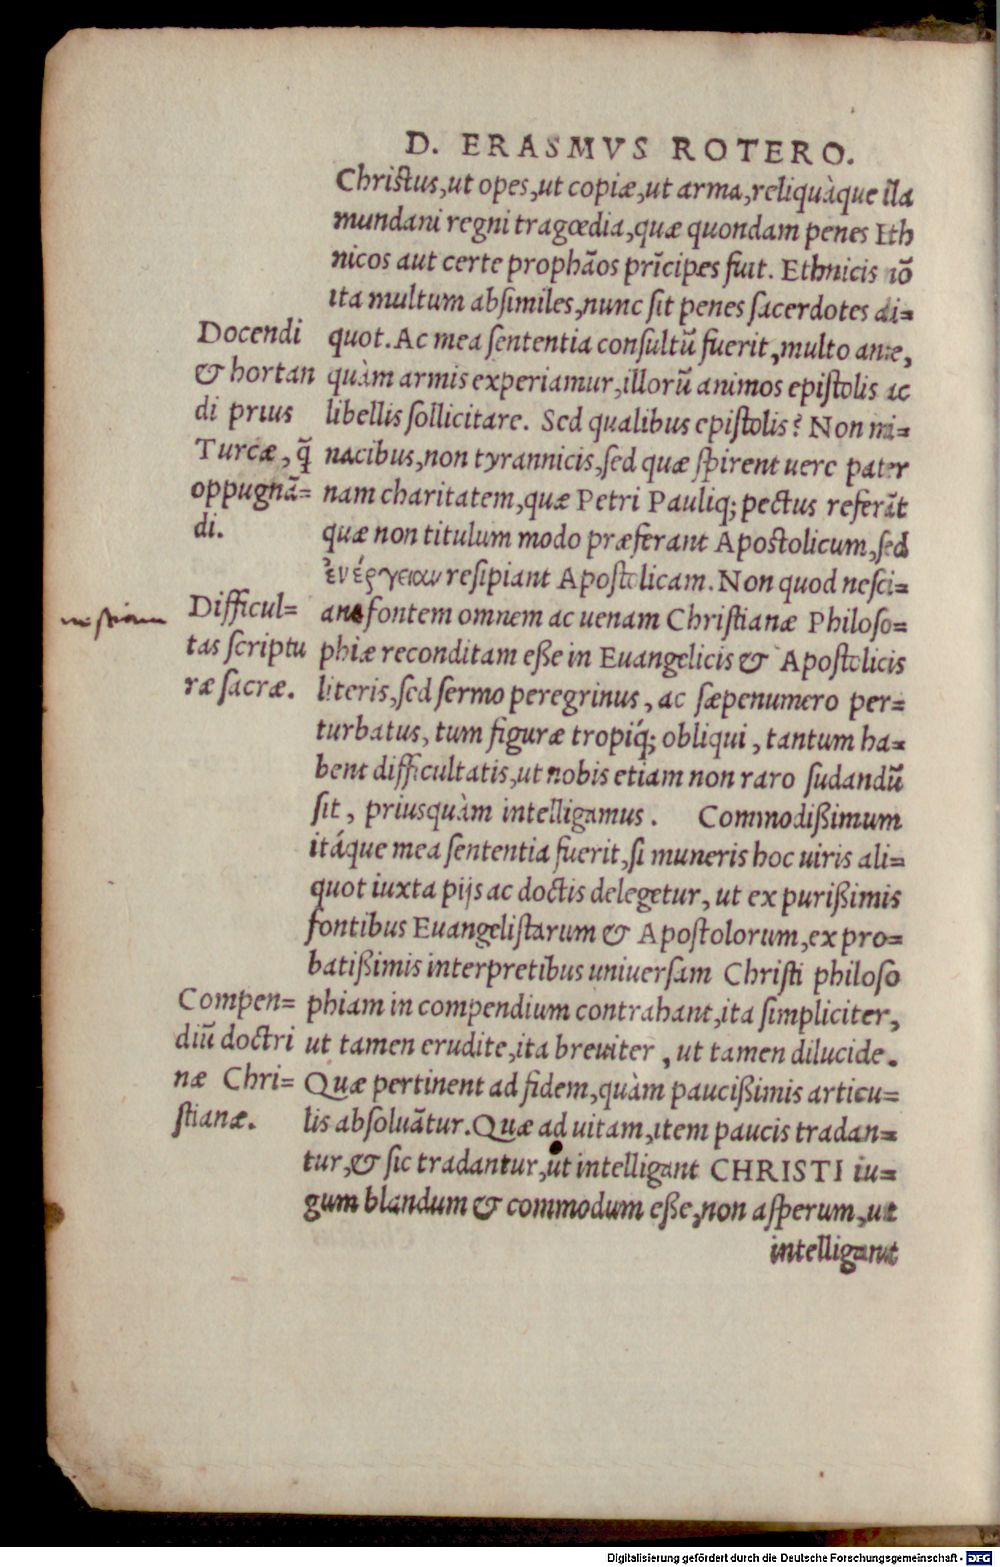 D. ERASMVS ROTERO.
Christus, ut opes, ut copiæ, ut arma, reliquàque illa
mundani regni tragœdia, quæ quondam penes Eth
nicos aut certe prophãos prĩcipes fuit. Ethnicis nõ
ita multum absimiles, nunc sit penes sacerdotes ali=
quot. Ac mea sententia consultũ fuerit, multo ante,
quàm armis experiamur, illorũ animos epistolis ac
libellis sollicitare. Sed qualibus epistolis? Non mi=
nacibus, non tyrannicis, sed quæ spirent uere pater
nam charitatem, quæ Petri Pauliq; pectus referãt
quæ non titulum modo præferant Apostolicum, sed
ἐνέργειαν resipiant Apostolicam. Non quod nesci=
am fontem omnem ac uenam Christianæ Philoso=
phiæ reconditam eße in Euangelicis & Apostolicis
literis, sed sermo peregrinus, ac sæpenumero per=
turbatus, tum figuræ tropiq́; obliqui, tantum ha=
bent difficultatis, ut nobis etiam non raro sudandũ
sit, priusquàm intelligamus. Commodißimum
itáque mea sententia fuerit, si muneris hoc uiris ali=
quot iuxta pijs ac doctis delegetur, ut ex purißimis
fontibus Euangelistarum & Apostolorum, ex pro=
batißimis interpretibus uniuersam Christi philoso
phiam in compendium contrahant, ita simpliciter,
ut tamen erudite, ita breuiter, ut tamen dilucide.
Quæ pertinent ad fidem, quàm paucißimis articu=
lis absoluãtur. Quæ ad uitam, item paucis tradan=
tur, & sic tradantur, ut intelligant CHRISTI iu=
gum blandum & commodum eße, non asperum, ut
intelligant
Docendi
& hortan
di prius
Turcæ, q̃
oppugnã=
di.
Difficul=
tas scriptu
ræ sacræ.
Compen=
diũ doctri
næ Chri=
stianæ.
Digitalisierung gefördert durch die Deutsche Forschungsgemeinschaft - DFG